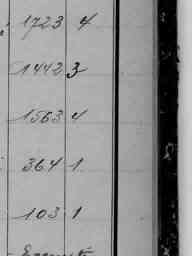 1723 4
1442 3
1563 4
364 1
103 1